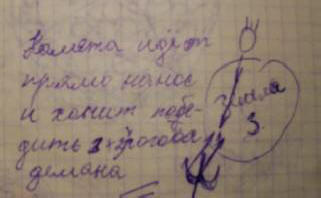 Комета идёт
прямо нанос
и хочит побе-
дить 3-хрогова
демана
глава
3.